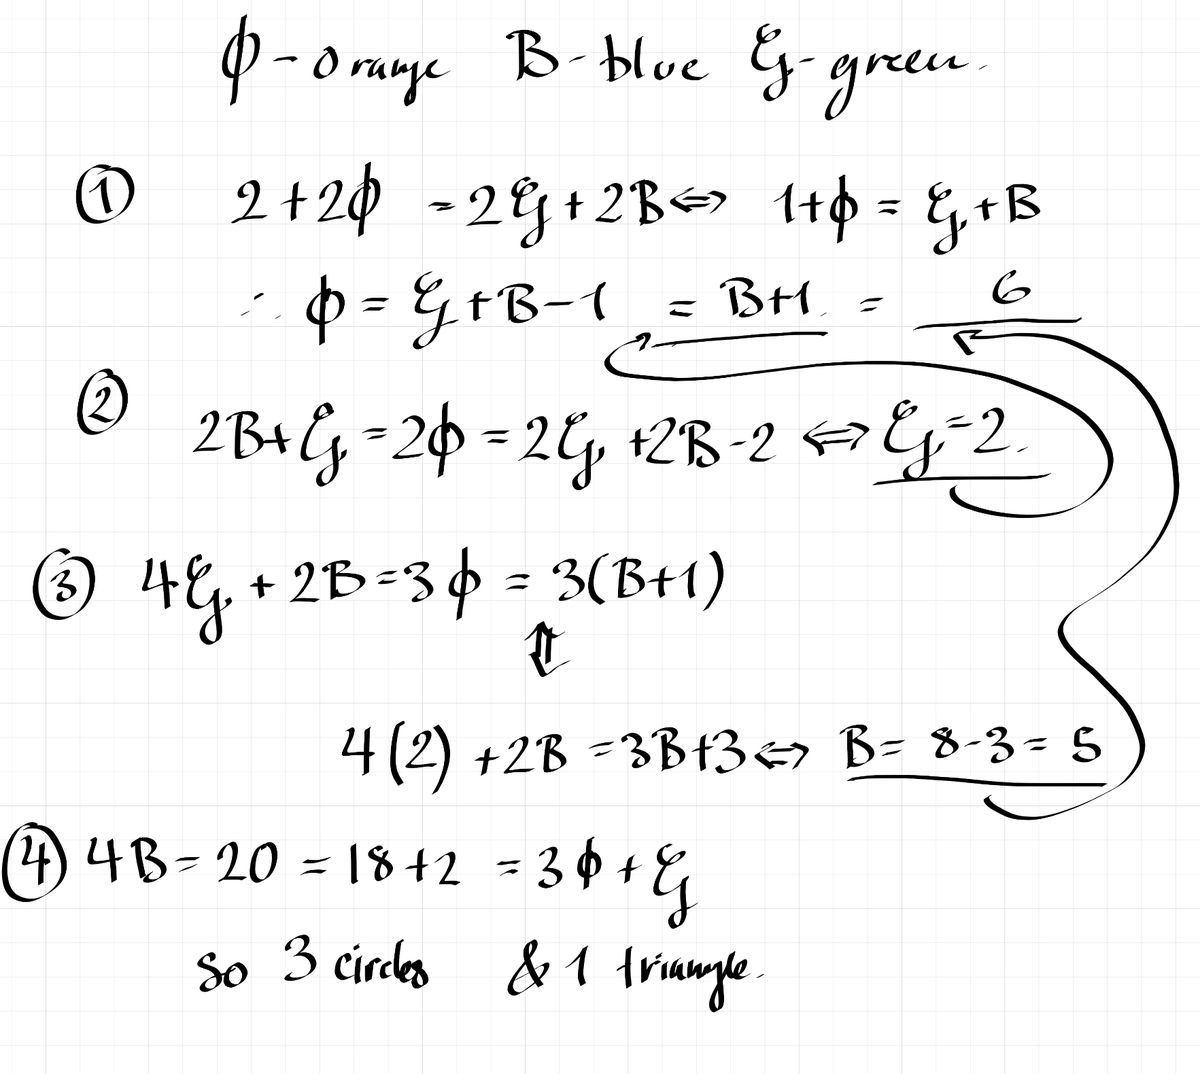 ϕ - orange B - blue G - green.
① 2 + 2ϕ - 2G + 2B ⇔ 1 + ϕ = G + B
∴ ϕ = G + B - 1 = B + 1 = 6
② 2B + G = 2ϕ = 2G + 2B - 2 ⇔ G = 2.
③ 4G + 2B = 3ϕ = 3(B + 1)
⇕
4(2) + 2B = 3B + 3 ⇔ B = 8 - 3 = 5
④ 4B = 20 = 18 + 2 = 3ϕ + G
So 3 circles & 1 triangle.